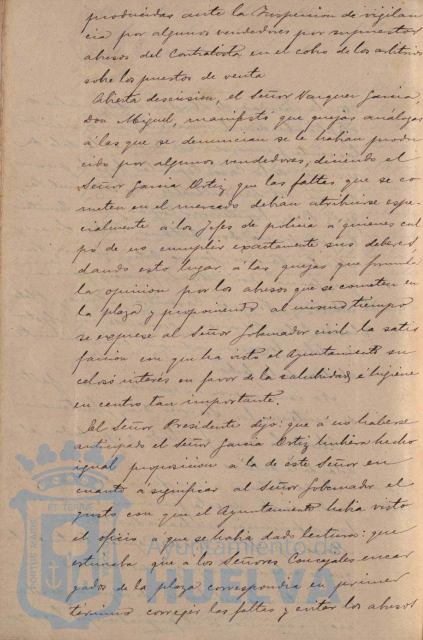 producidas ante la Inspección de vigilan
cia por algunos vendedores por supuestos
abusos del Contratista en el cobro de los arbitrios
sobre los puestos de venta
Abierta discusión, el Señor Vazquez García,
Don Miguel, manifestó que quejas análogas
á las que se denuncian se le habian produ
cido por algunos vendedores, diciendo el
Señor García Ortiz que las faltas que se co
meten en el mercado debian atribuirse espe
cialmente á los Jefes de policia á quienes cul
pó de no cumplir exactamente sus deberes,
dando esto lugar á las quejas que formula
la opinion por los abusos que se cometen en
la plaza y proponiendo al mismo tiempo
se exprese al Señor Gobernador civil la satis
faccion con que ha visto el Ayuntamiento su
celoso interés en favor de la salubridad é higiene
en centro tan importante.
El Señor Presidente dijo: que á no haberse
anticipado el Señor García Ortiz hubiera hecho
igual proposicion á la de este Señor en
cuanto á significar al Señor Gobernador el
gusto con que el Ayuntamiento habia visto
el oficio á que se habia dado lectura: que
estimaba que á los Señores Concejales encar
gados de la plaza correspondia en primer
termino corregir las faltas y evitar los abusos
Ayuntamiento de
HUELVA